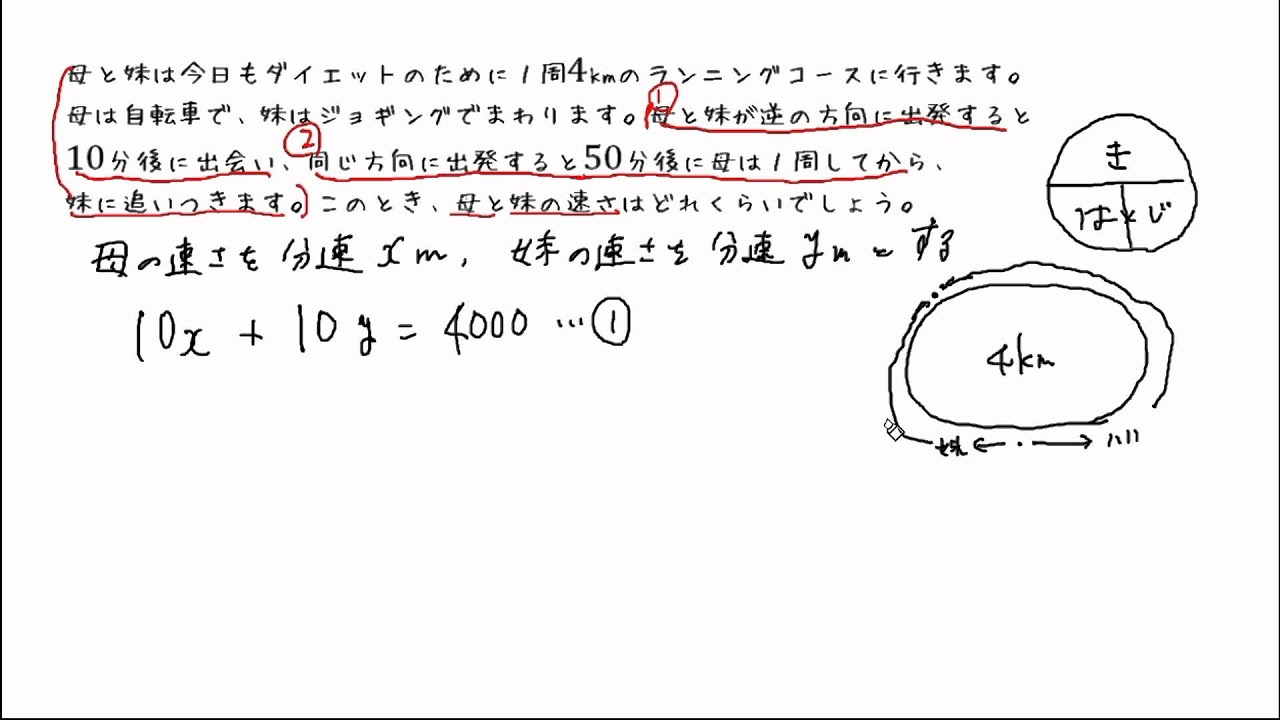 母と妹は今日もダイエットのために1周4kmのランニングコースに行きます。
母は自転車で、妹はジョギングでまわります。①母と妹が逆の方向に出発すると
10分後に出会い、②同じ方向に出発すると50分後に母は1周してから、
妹に追いつきます。このとき、母と妹の速さはどれくらいでしょう。
母の速さを分速xm, 妹の速さを分速ymとする
10x + 10y = 4000 …①
き
は
じ
4km
妹 ← ・ →